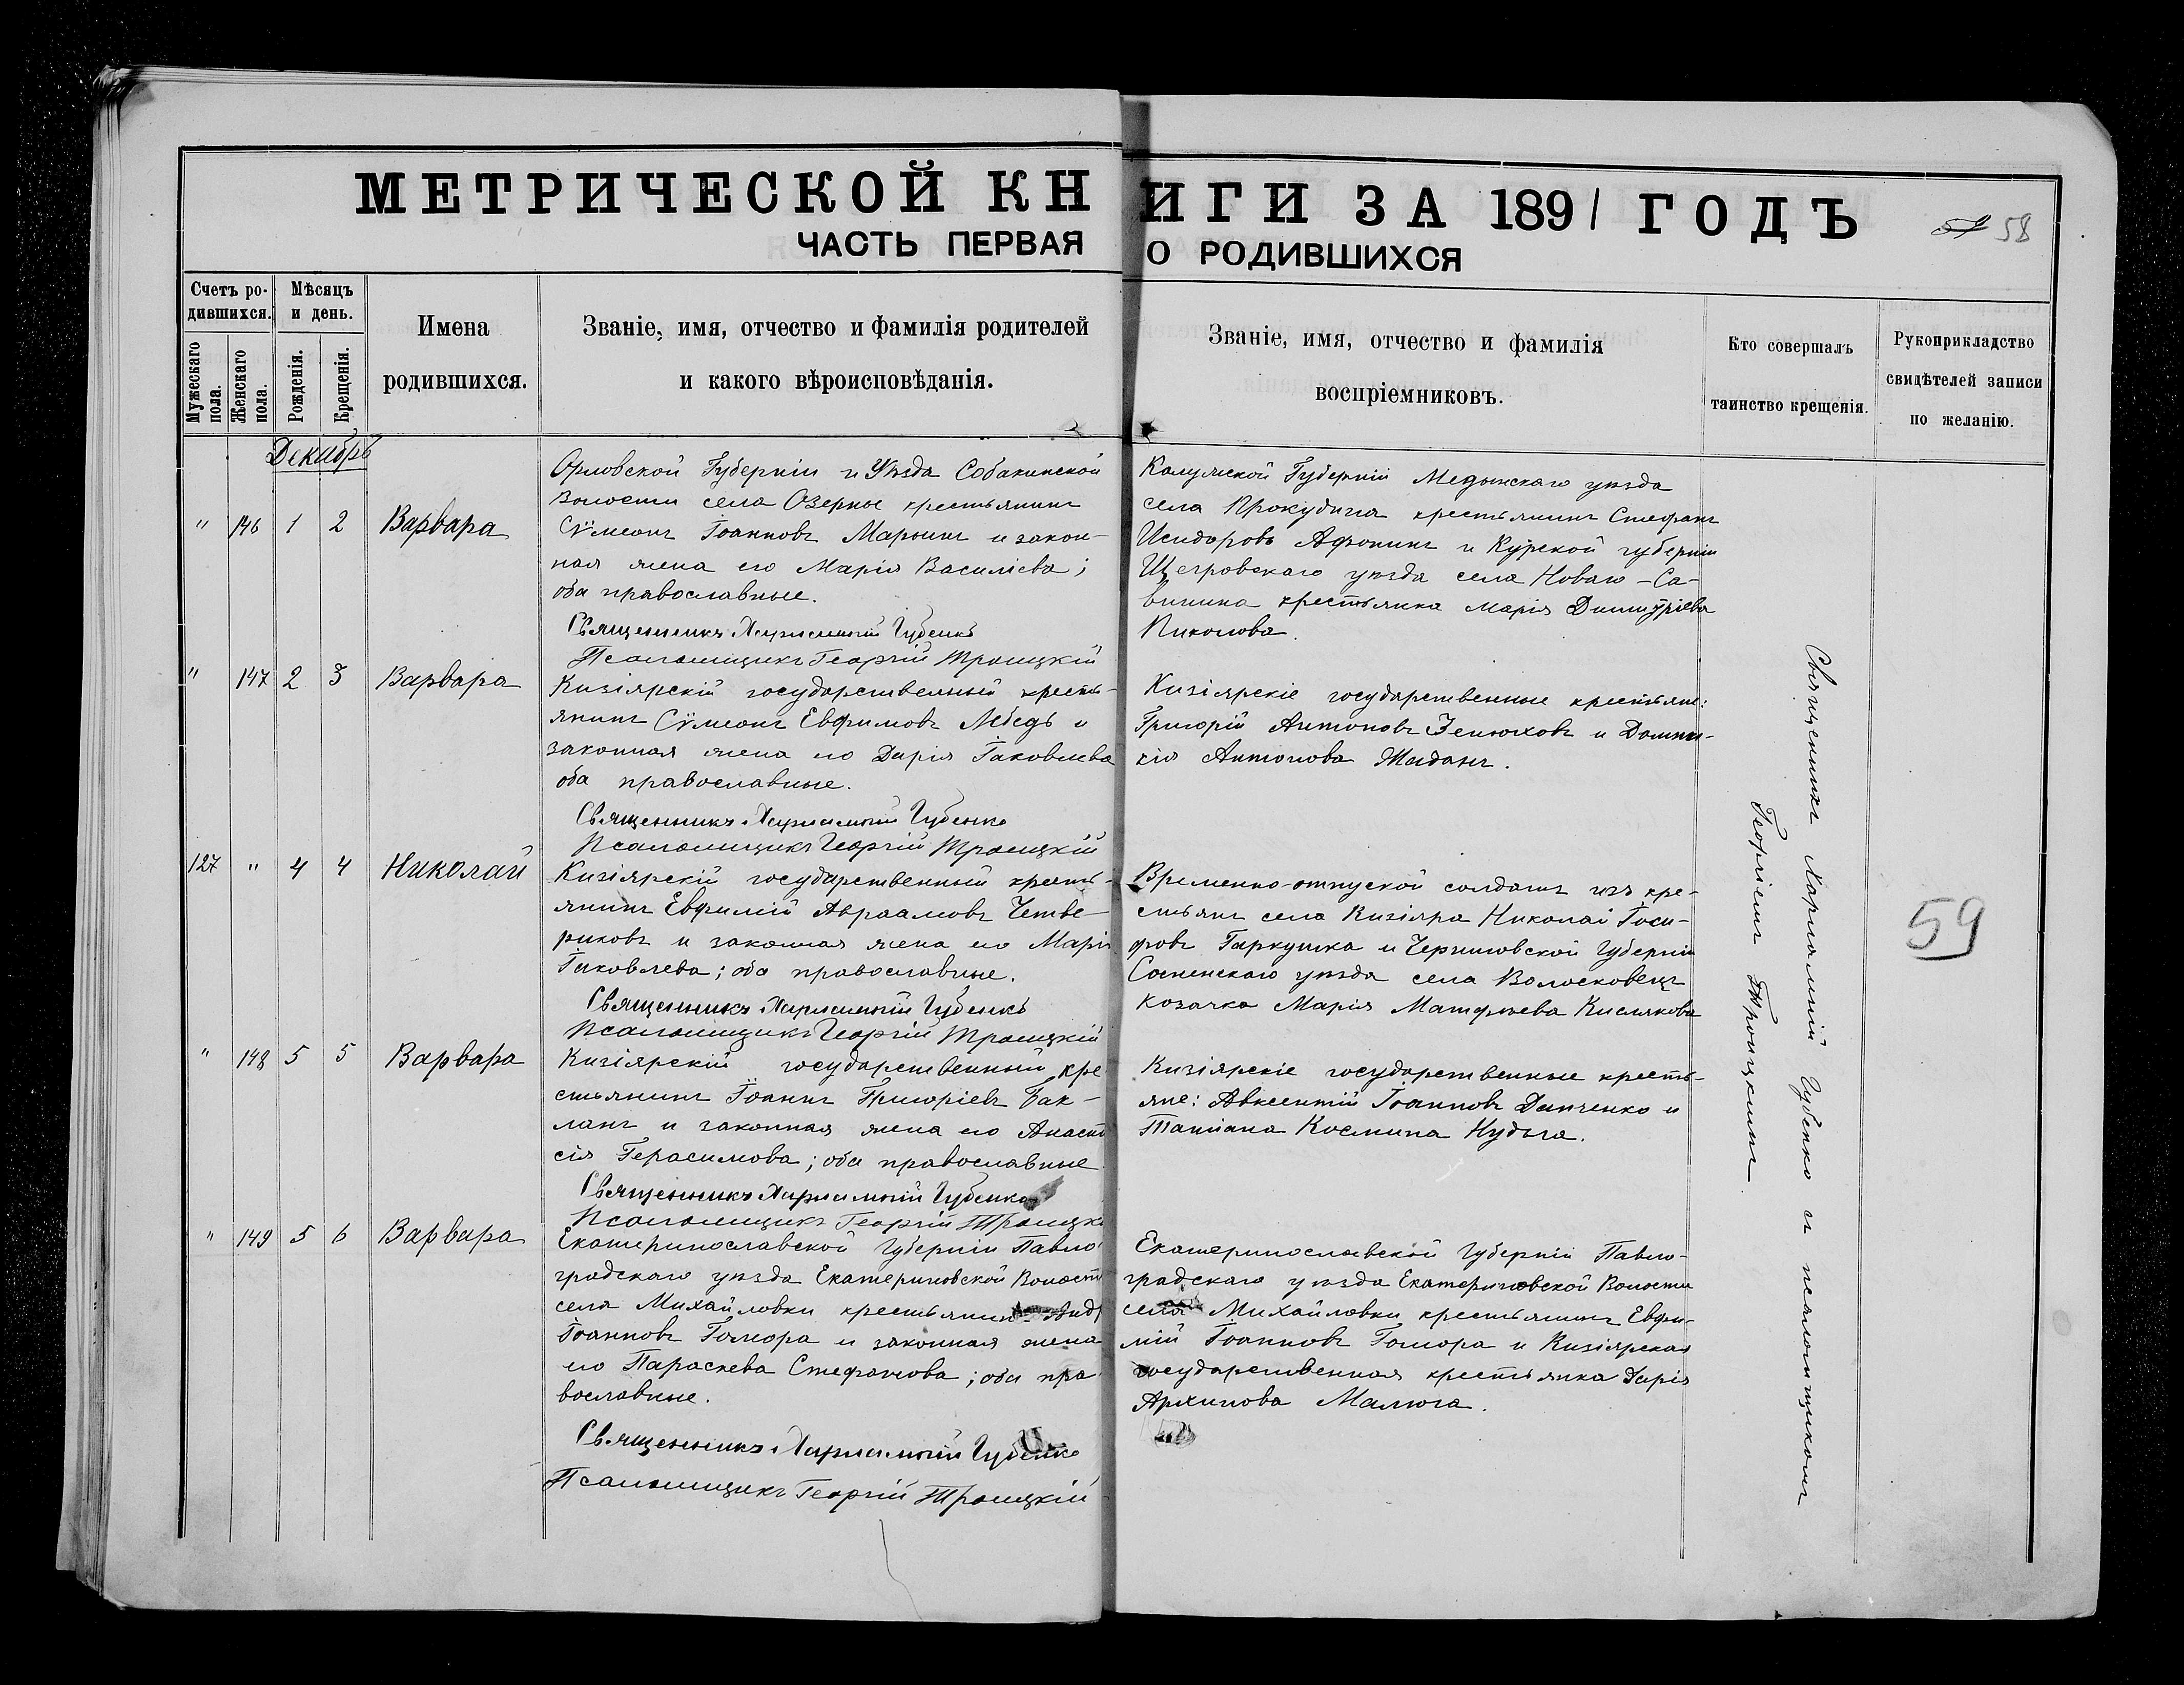 МЕТРИЧЕСКОЙ КНИГИ ЗА 1891 ГОДЪ
58
ЧАСТЬ ПЕРВАЯ О РОДИВШИХСЯ
Счетъ ро-
дившихся.
Мужескаго пола.
Женскаго пола.
Мѣсяцъ
и день.
Рожденія.
Крещенія.
Имена
родившихся.
Званіе, имя, отчество и фамилія родителей
и какого вѣроисповѣданія.
Званіе, имя, отчество и фамилія
воспріемниковъ.
Кто совершалъ
таинство крещенія.
Рукоприкладство
свидѣтелей записи
по желанію.
Декабрь
" 146 1 2 Варвара
Орловской Губерніи и Уѣзда Собакинской
Волости села Озерные крестьянинъ
Сѵмеонъ Іоанновъ Марынинъ и закон-
ная жена его Марія Василіева;
оба православные.
Священникъ Харлампій Губенко
Псаломщикъ Георгій Троицкій
Калужской Губерніи Медынскаго уѣзда
села Прокудина крестьянинъ Стефанъ
Исидоровъ Афонинъ и Курской губерніи
Щегровскаго уѣзда села Новаго-Са-
винина крестьянка Марія Димитріева
Пиконова.
" 147 2 3 Варвара
Кизіярскій государственный кресть-
янинъ Сѵмеонъ Евфимовъ Лебедь и
законная жена его Дарія Іаковлева
оба православные.
Священникъ Харлампій Губенко
Псаломщикъ Георгій Троицкій
Кизіярскіе государственные крестьяне:
Григорій Антоновъ Зенюховъ и Домни-
кія Антонова Жаданъ.
127 " 4 4 Николай
Кизіярскій государственный кресть-
янинъ Евфимій Авраамовъ Четве-
риковъ и законная жена его Марія
Іаковлева; оба православные.
Священникъ Харлампій Губенко
Псаломщикъ Георгій Троицкій
Временно-отпуской солдатъ изъ кре-
стьянъ села Кизіяра Николай Іоси-
фовъ Гаркушка и Черниговской Губерніи
Сосненскаго уѣзда села Волосковецъ
козачка Марія Матфѣева Кислякова
" 148 5 5 Варвара
Кизіярскій государственный кре
стьянинъ Іоаннъ Григоріевъ Бак-
ланъ и законная жена его Анаста
сія Герасимова; оба православные
Священникъ Харлампій Губенко
Псаломщикъ Георгій Троицкі
Кизіярскіе государственные кресть-
яне: Авксентій Іоанновъ Данченко и
Татіана Космина Кудыга.
" 149 5 6 Варвара
Екатеринославской Губерніи Павло
градскаго уѣзда Екатериновской Волости
села Михайловки крестьянинъ Анд
Іоанновъ Гомора и законная жена
его Параскева Стефанова; оба пра
вославные.
Священникъ Харлампій Губенко
Псаломщикъ Георгій Троицкій
Екатеринославской Губерніи Павло-
градскаго уѣзда Екатериновской Волости
села Михайловки крестьянинъ Евфи-
мій Іоанновъ Гомора и Кизіярская
государственная крестьянка Дарія
Архипова Малюга.
Священникъ Харлампій Губенко и псаломщикомъ
Георгіемъ Троицкимъ
59